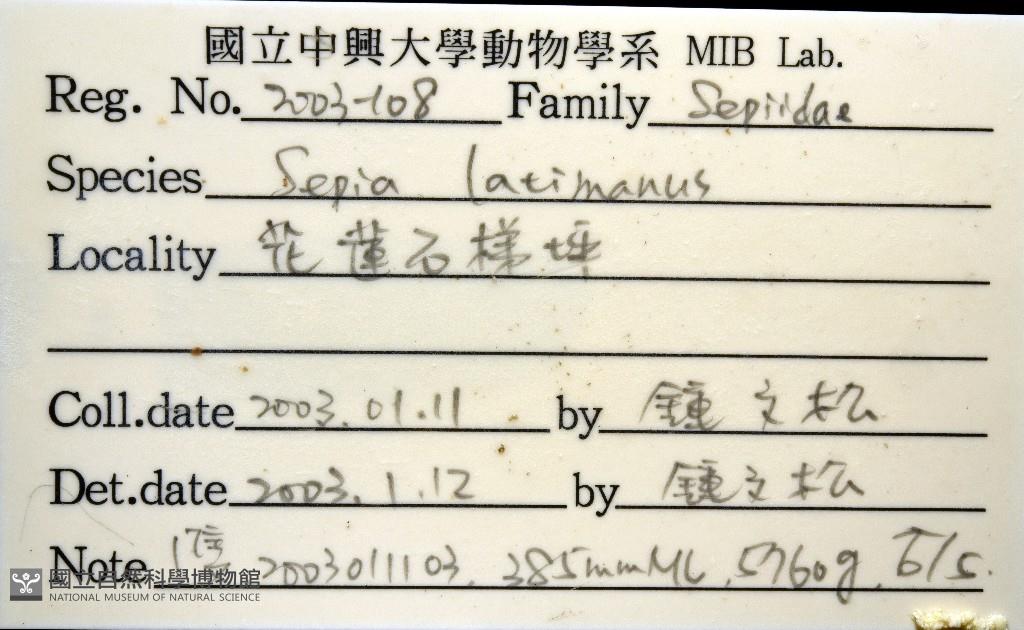 國立中興大學動物學系 MIB Lab.
Reg. No. 2003-108 Family Sepiidae
Species Sepia latimanus
Locality 花蓮石梯坪
Coll.date 2003.01.11 by 鍾文松
Det.date 2003.1.12 by 鍾文松
Note 2003011103, 385mmML, 5760g, ♂/5.
國立自然科學博物館
NATIONAL MUSEUM OF NATURAL SCIENCE